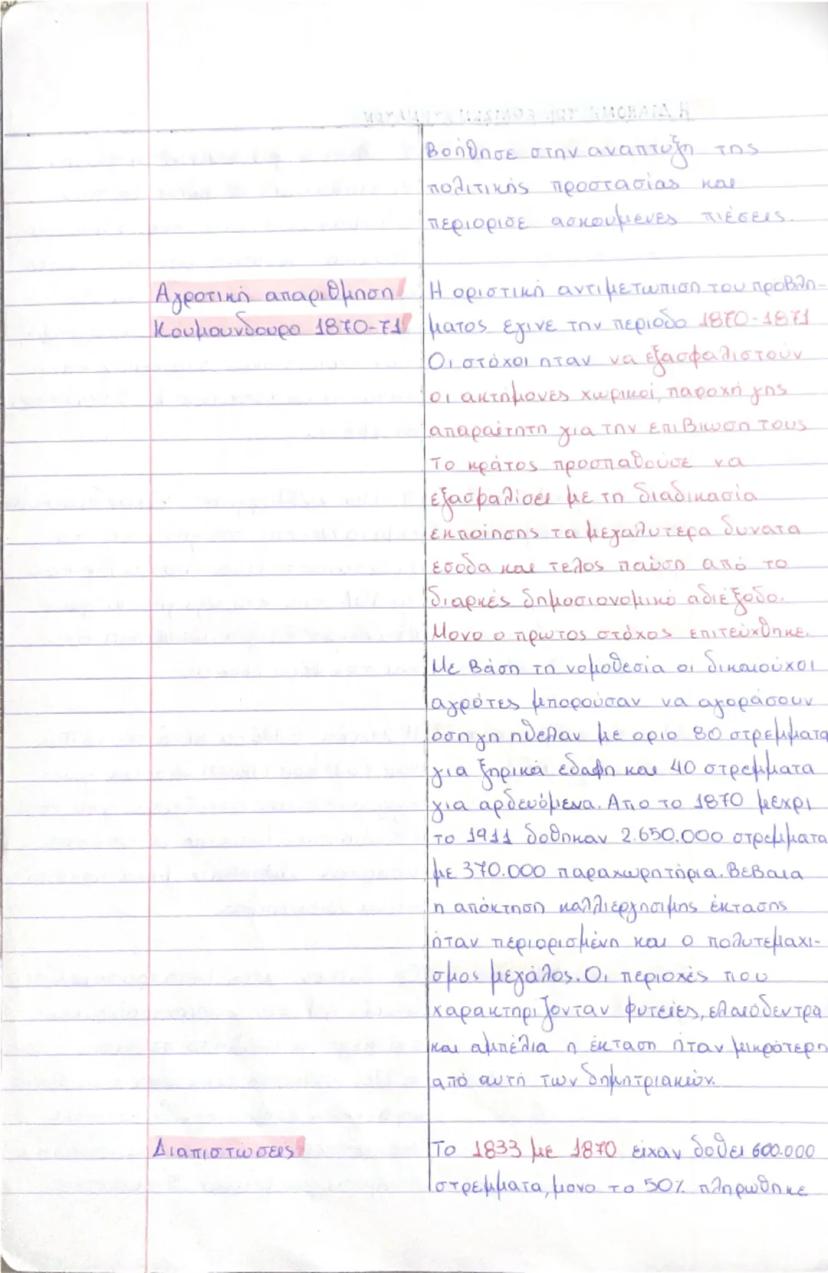 βοήθησε στην αναπτυξη της
πολιτικής προστασίας και
περιορισε ασκουμενες πιέσεις.
Αγροτική απαρίθμηση
Κουμουνδουρο 1870-71
Η οριστική αντιμετωπιση του προβλη-
ματος εγινε την περιοδο 1870-1871
Οι στόχοι ηταν να εξασφαλιστούν
οι ακτήμονες χωρικοί, παροχή γης
απαραίτητη για την επιβιωση τους
το κράτος προσπαθούσε να
εξασφαλίσει με τη διαδικασία
εκποίησης τα μεγαλυτερα δυνατα
εσοδα και τελος παύση από το
διαρκές δημοσιονομικό αδιέξοδο.
Μονο ο πρωτος στόχος επιτεύχθηκε.
Με βάση τη νομοθεσία οι δικαιούχοι
αγρότες μπορούσαν να αγοράσουν
οση γη ηθελαν με οριο 80 στρεμματα
για ξηρικά εδαφη και 40 στρεμματα
για αρδευόμενα. Απο το 1870 μεχρι
το 1911 δοθηκαν 2.650.000 στρεμματα
με 370.000 παραχωρητήρια. Βεβαια
η απόκτηση καλλιεργησιμης έκτασης
ήταν περιορισμένη και ο πολυτεμαχι-
σμος μεγάλος. Οι περιοχές που
χαρακτηριζονταν φυτείες, ελαιόδεντρα
και αμπέλια η έκταση ήταν μικρότερη
από αυτή των δημητριακών.
Διαπιστώσεις
Το 1833 με 1870 ειχαν δοθει 600.000
στρεμματα, μονο το 50% πληρωθηκε